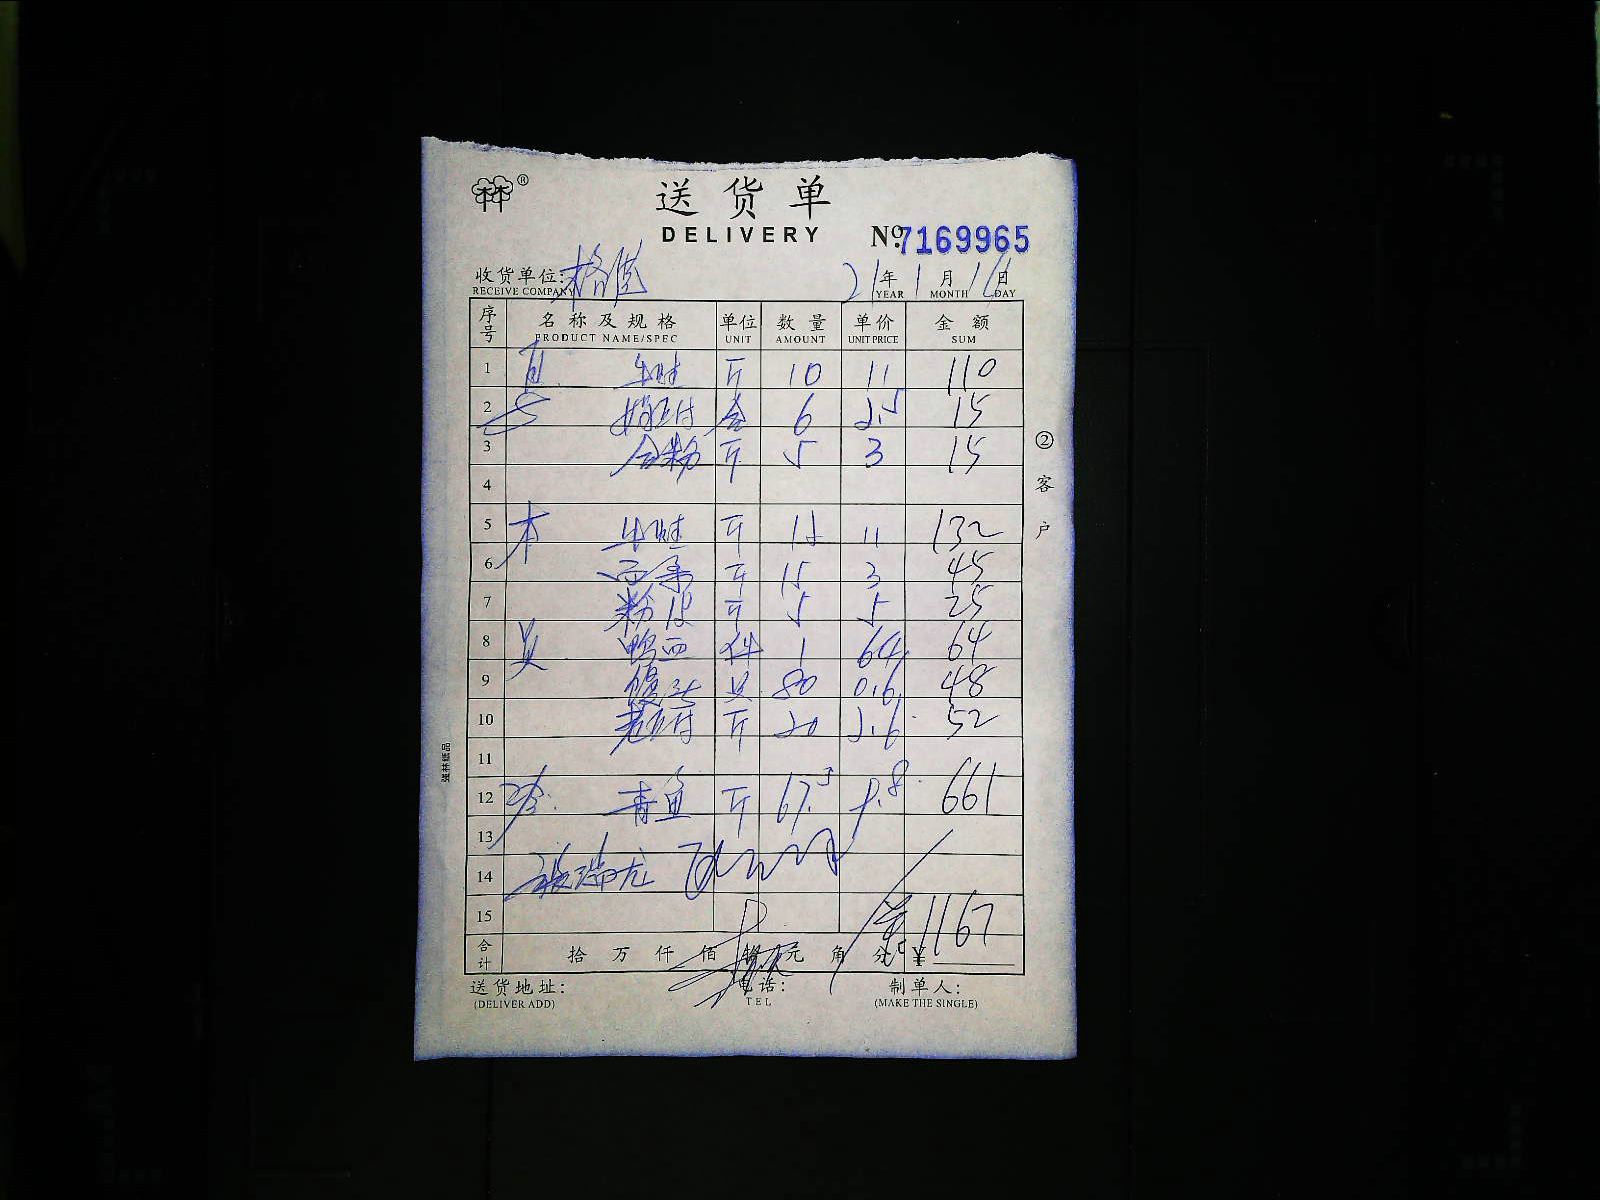 林®
送货单
DELIVERY
№ 7169965
收货单位: 格
RECEIVE COMPANY
21年 1月 16日
YEAR MONTH DAY
序号 名称及规格 单位 数量 单价 金额
PRODUCT NAME/SPEC UNIT AMOUNT UNIT PRICE SUM
1 牛蛙 斤 10 11 110
2 6 2.5 15
3 合粉 斤 5 3 15
4
5 本 牛蛙 斤 12 11 132
6 斤 15 3 45
7 粉皮 斤 5 5 25
8 鸭血 件 1 64 64
9 馒头 只 80 0.6 48
10 斤 20 2.6 52
11
12 冷 青鱼 斤 67.5 9.8 661
13
14
15
合计 拾 万 仟 佰 拾 元 角 分 ¥ 1167
送货地址: 电话: 制单人:
(DELIVER ADD) TEL (MAKE THE SINGLE)
②客户
强林纸品